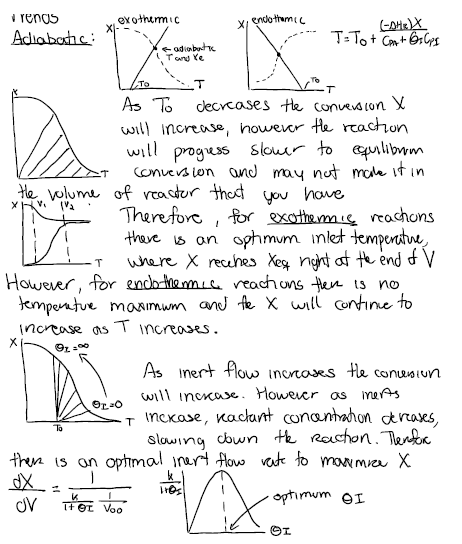 Trends
Adiabatic:
exothermic
X
adiabatic
T and Xe
To
T
endothermic
X
To
T
T = To + (-ΔHR)X / CPA + ΘI CPI
X
T
As To decreases the conversion X
will increase, however the reaction
will progress slower to equilibrium
conversion and may not make it in
the volume of reactor that you have
X
V1
V2
T
Therefore, for exothermic reactions
there is an optimum inlet temperature,
where X reaches Xeq right at the end of V
However, for endothermic reactions there is no
temperature maximum and the X will continue to
increase as T increases.
X
ΘI=∞
ΘI=0
To
T
As inert flow increases the conversion
will increase. However as inerts
increase, reactant concentration decreases,
slowing down the reaction. Therefore
there is an optimal inert flow rate to maximize X
dX/dV = 1 / k/1+ΘI 1/V00
k/1+ΘI
optimum ΘI
ΘI